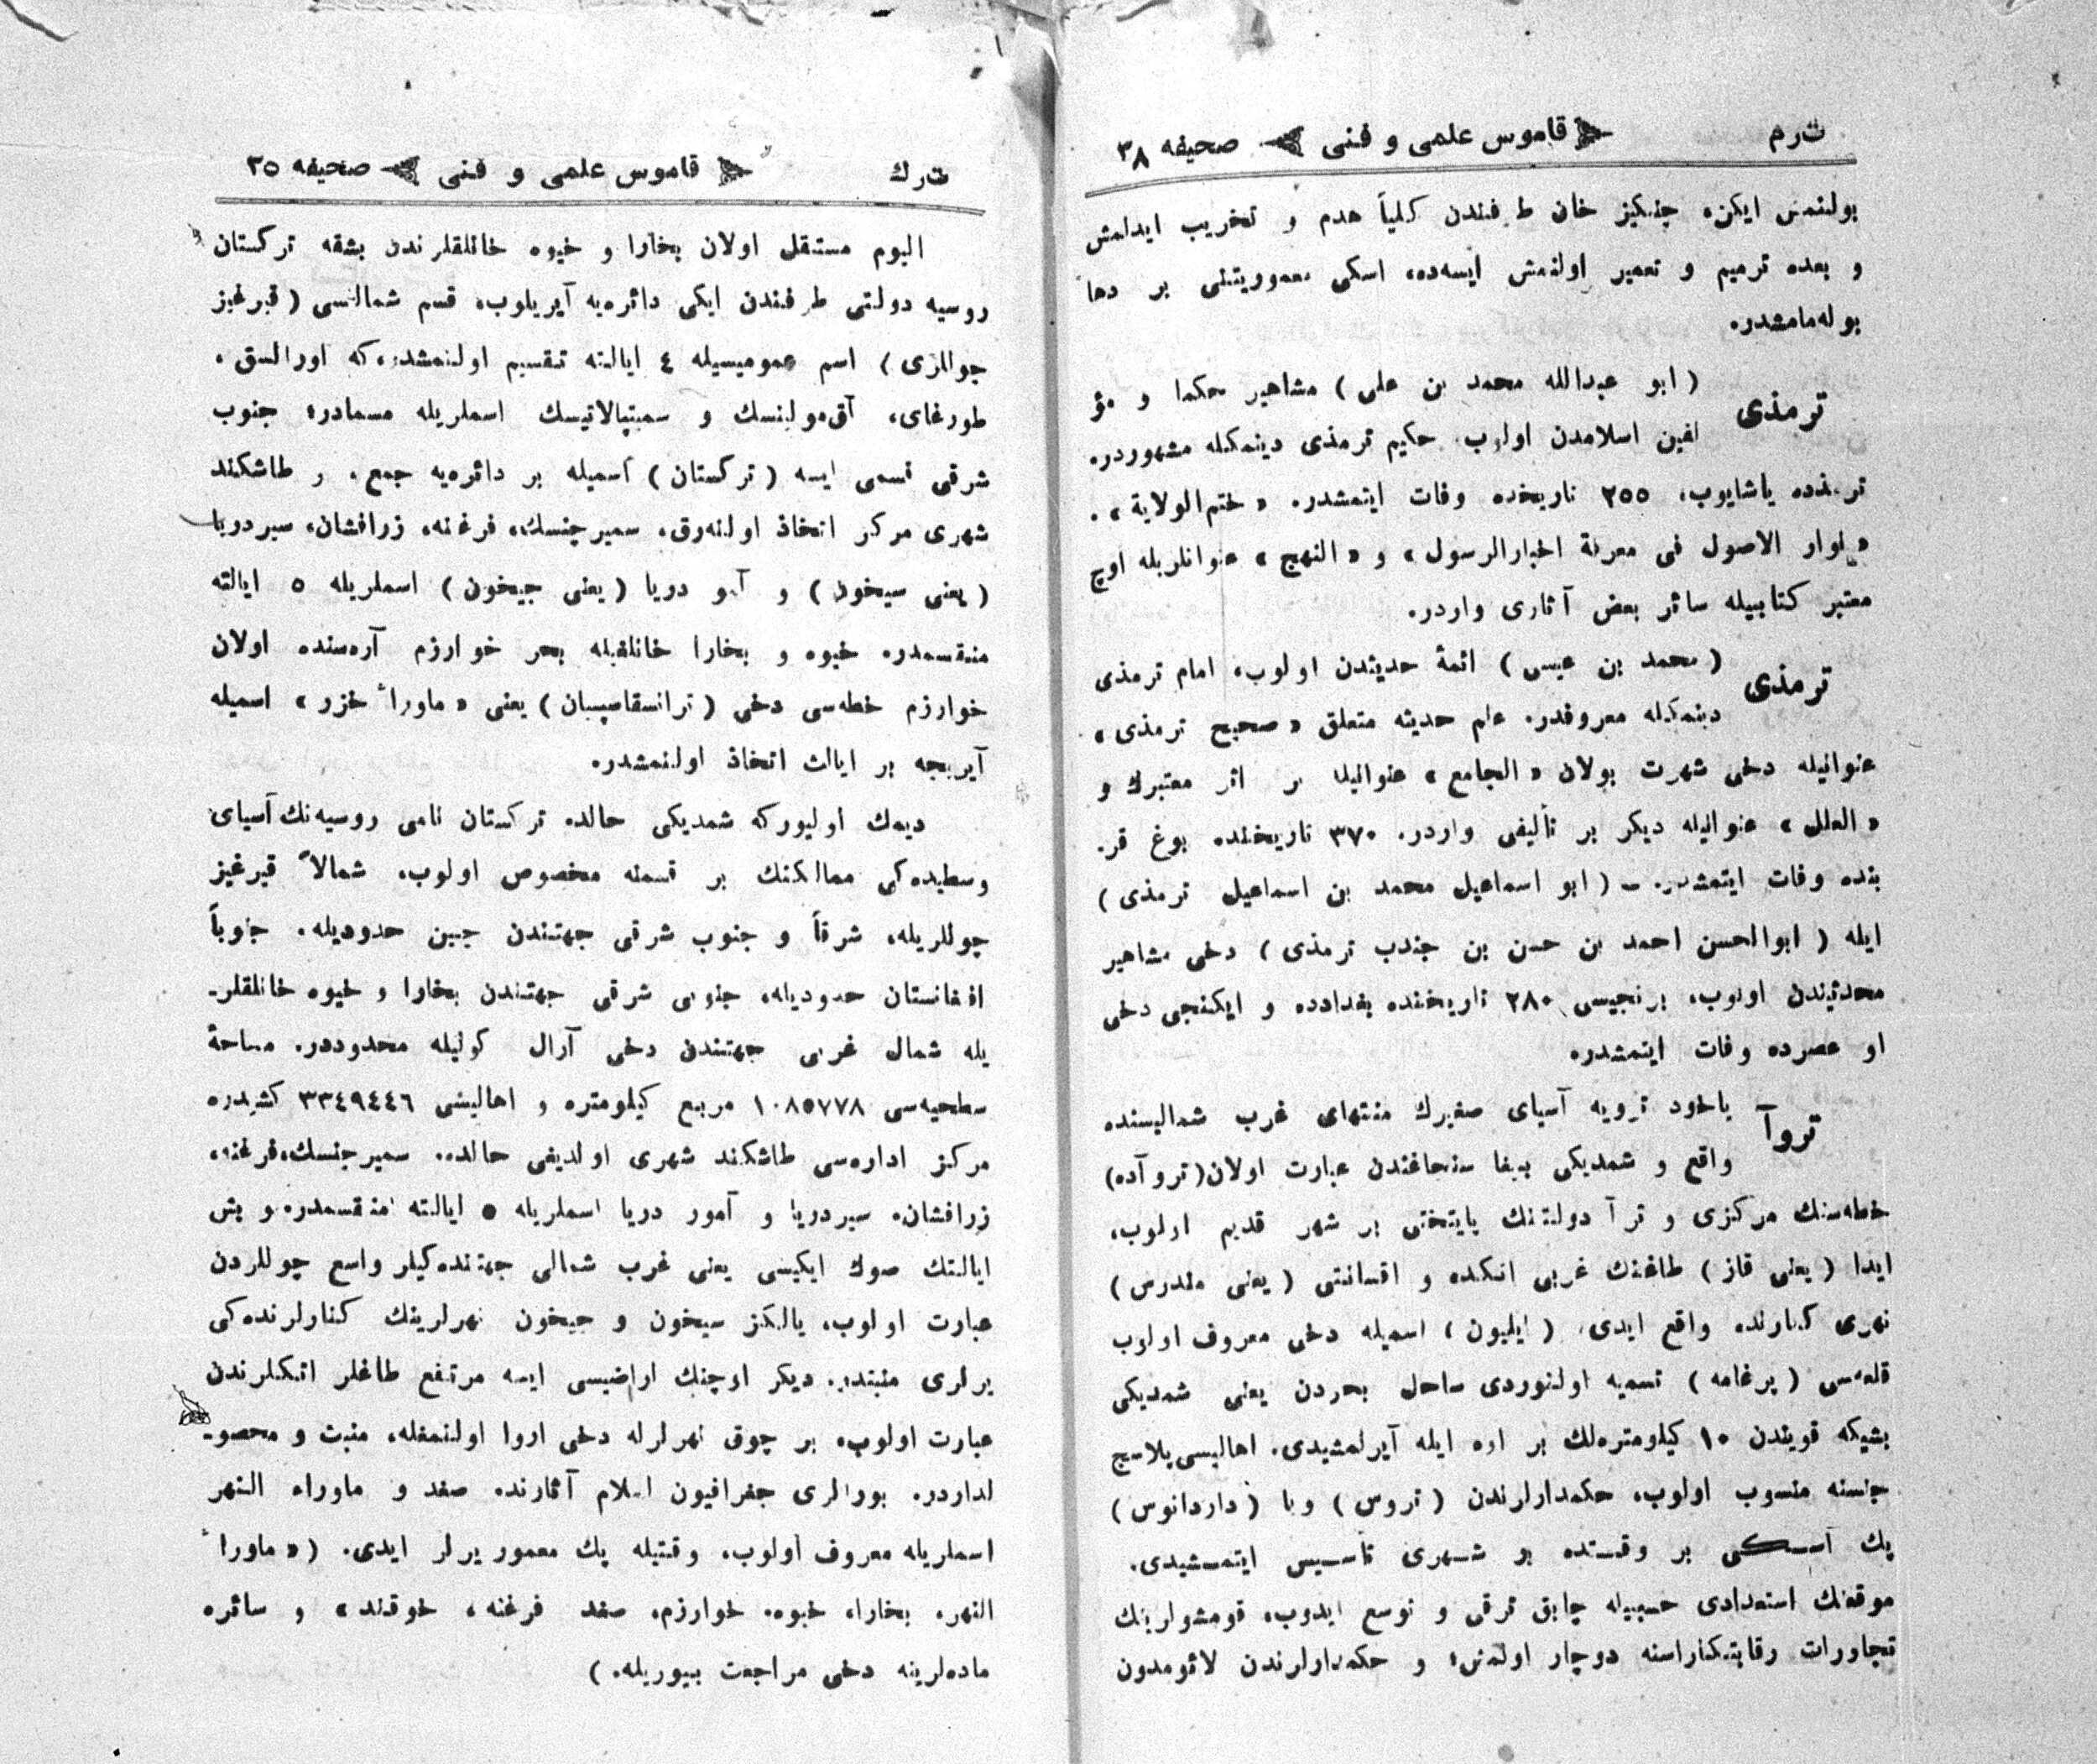 ت‌رم قاموس علمی و فنی صحیفه ٣٨
بولنمش ایکن، چنکیز خان طرفندن کلیاً هدم و تخریب ایدلمش
و بعده ترمیم و تعمیر اولنمش ایسه‌ده، اسکی معموریتنی بر دها
بوله‌مامشدر.
ترمذی (ابو عبدالله محمد بن علی) مشاهیر حکما و مؤ
لفین اسلامدن اولوب، حکیم ترمذی دینمکله مشهوردر.
ترمذده یاشایوب، ٢٥٥ تاریخنده وفات ایتمشدر. «ختم‌الولایة»،
«نوادر الاصول فی معرفة اخبارالرسول» و «النهج» عنوانلریله اوچ
معتبر کتابیله سائر بعض آثاری واردر.
ترمذی (محمد بن عیسی) ائمهٔ حدیثدن اولوب، امام ترمذی
دینمکله معروفدر. علم حدیثه متعلق «صحیح ترمذی»
عنوانیله دخی شهرت بولان «الجامع» عنوانیله بر اثر معتبرك و
«العلل» عنوانیله دیکر بر تألیفی واردر. ٣٧٠ تاریخنده بوغ قر.
بنده وفات ایتمشدر. ـ (ابو اسماعیل محمد بن اسماعیل ترمذی)
ایله (ابوالحسن احمد بن حسن بن جندب ترمذی) دخی مشاهیر
محدثیندن اولوب، برنجیسی ٢٨٠ تاریخنده بغدادده و ایکنجی دخی
او عصرده وفات ایتمشدر.
تروآ یاخود ترویه آسیای صغیرك منتهای غرب شمالیسنده
واقع و شمدیکی بیغا سنجاغندن عبارت اولان (تروآده)
خطه‌سنك مرکزی و ترآ دولتنك پایتختی بر شهر قدیم اولوب،
ایدا (یعنی قاز) طاغنك غربی اتکنده و اقسانتی (یعنی مندرس)
نهری کنارنده واقع ایدی. (ایلیون) اسمیله دخی معروف اولوب
قلعه‌سی (پرغامه) تسمیه اولنوردی ساحل بحردن یعنی شمدیکی
بشیکه قویندن ١٠ کیلومتره‌لك بر اره ایله آیرلمشیدی. اهالیسی پلاسج
جنسنه منسوب اولوب، حکمدارلرندن (تروس) ویا (داردانوس)
پك آسـکی بر وقـتده بو شـهری تأسـیس ایتمـشیدی.
موقعنك استعدادی حسبیله چابق ترقی و توسع ایدوب، قومشولرینك
تجاورات رقابتکاراسنه دوچار اولمش؛ و حکمدارلرندن لائومدون
ت‌رك قاموس علمی و فنی صحیفه ٣٥
الیوم مستقل اولان بخارا و خیوه خانلقلرندن بشقه ترکستان
روسیه دولتی طرفندن ایکی دائره‌یه آیریلوب، قسم شمالیسی (قیرغیز
چوللری) اسم عمومیسیله ٤ ایالته تقسیم اولنمشدر، که اورالسق،
طورغای، آق‌مولینسك و سمیپالاتیسك اسملریله مسمادر؛ جنوب
شرقی قسمی ایسه (ترکستان) اسمیله بر دائره‌یه جمع، و طاشکند
شهری مرکز اتخاذ اولنه‌رق، سمیرجنسك، فرغنه، زرافشان، سیردریا
(یعنی سیخون) و آمو دریا (یعنی جیخون) اسملریله ٥ ایالته
منقسمدر. خیوه و بخارا خانلغیله بحر خوارزم آره‌سنده اولان
خوارزم خطه‌سی دخی (ترانسقاسپیان) یعنی «ماوراء خزر» اسمیله
آیریجه بر ایالت اتخاذ اولنمشدر.
دیمك اولیورکه شمدیکی حالده ترکستان نامی روسیه‌نك آسیای
وسطیده‌کی ممالکنك بر قسمنه مخصوص اولوب، شمالاً قیرغیز
چوللریله، شرقاً و جنوب شرقی جهتندن چین حدودیله، جنوباً
افغانستان حدودیله، جنوبی شرقی جهتندن بخارا و خیوه خانلقلر-
یله شمال غربی جهتندن دخی آرال کولیله محدوددر. مساحهٔ
سطحیه‌سی ١٠٨٥٧٧٨ مربع کیلومتره و اهالیسی ٣٣٤٩٤٤٦ کشیدر.
مرکز اداره‌سی طاشکند شهری اولدیغی حالده، سمیرجنسك، فرغنه،
زرافشان، سیردریا و آمور دریا اسملریله ٥ ایالته منقسمدر. و بش
ایالتك صوك ایکیسی یعنی غرب شمالی جهتنده‌کیلر واسع چوللردن
عبارت اولوب، یالکز سیخون و جیخون نهرلرینك کنارلرنده‌کی
یرلری منبتدر. دیکر اوچنك اراضیسی ایسه مرتفع طاغلر اتکلرندن
عبارت اولوب، بر چوق نهرلرله دخی اروا اولنمغله، منبت و محصو-
لداردر. بورالری جغرافیون اسلام آثارنده صغد و ماوراء النهر
اسملریله معروف اولوب، وقتیله پك معمور یرلر ایدی. («ماوراء
النهر، بخارا، خیوه، خوارزم، صغد فرغنه، خوقند» و سائره
ماده‌لرینه دخی مراجعت بیوریله.)